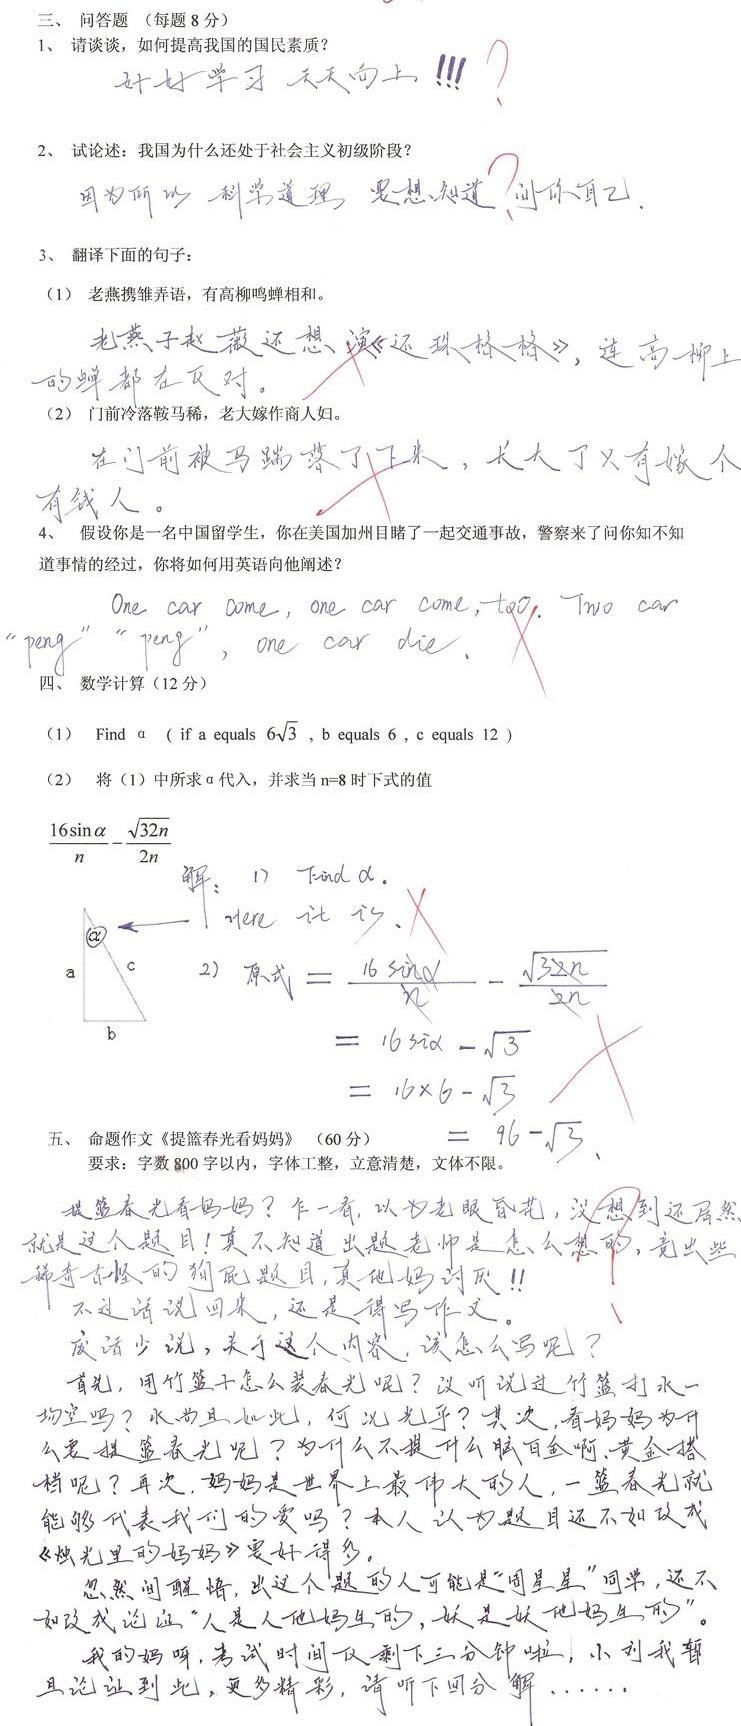 三、 问答题 （每题 8 分）
1、 请谈谈，如何提高我国的国民素质？
好好学习 天天向上 !!! ?
2、 试论述：我国为什么还处于社会主义初级阶段？
因为所以 科学道理 要想知道 问你自己. ?
3、 翻译下面的句子：
（1） 老燕携雏弄语，有高柳鸣蝉相和。
老燕子赵薇还想演《还珠格格》，连高柳上
的蝉都在反对。
（2） 门前冷落鞍马稀，老大嫁作商人妇。
在门前被马踹落了下来，长大了又有嫁个
有钱人。
4、 假设你是一名中国留学生，你在美国加州目睹了一起交通事故，警察来了问你知不知
道事情的经过，你将如何用英语向他阐述？
One car come, one car come, too. Two car
"peng" "peng", one car die.
四、 数学计算（12 分）
（1） Find α ( if a equals 6√3 , b equals 6 , c equals 12 )
（2） 将（1）中所求α代入，并求当 n=8 时下式的值
16sinα/n − √32n/2n
解： 1） Find α.
Here it is.
α
a
c
b
2） 原式 = 16 sinα/n − √32n/2n
= 16 siα − √3
= 16×6 − √3
= 96 − √3.
五、 命题作文《提篮春光看妈妈》 （60 分）
要求：字数 800 字以内，字体工整，立意清楚，文体不限。
提篮春光看妈妈？乍一看，以为老眼昏花，没想到还居然
就是这个题目！真不知道出题老师是怎么想的，竟出些
稀奇古怪的狗屁题目，真他妈讨厌!!
不过话说回来，还是得写作文。
废话少说，关于这个内容，该怎么写呢？
首先，用竹篮子怎么装春光呢？没听说过竹篮打水一
场空吗？水尚且如此，何况光乎？其次，看妈妈为什
么要提篮春光呢？为什么不提什么脑白金啊，黄金搭
档呢？再次，妈妈是世界上最伟大的人，一篮春光就
能够代表我们的爱吗？本人认为题目还不如改成
《烛光里的妈妈》要好得多。
忽然间醒悟，出这个题的人可能是"周星星"同学，还不
如改成论证"人是人他妈生的，妖是妖他妈生的"。
我的妈呀，考试时间仅剩下三分钟啦，小刘我暂
且论证到此，更多精彩，请听下回分解……